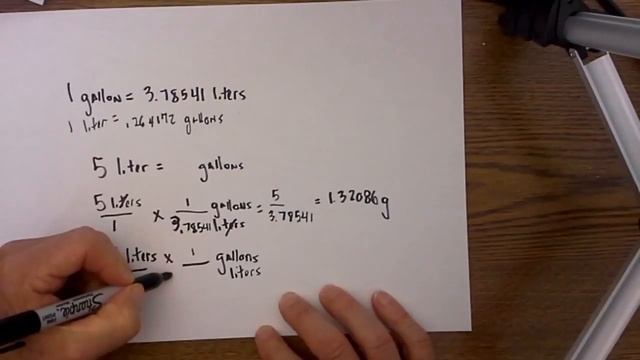 1 gallon = 3.78541 liters
1 liter = .264172 gallons
5 liter = gallons
5 liters / 1 × 1 gallons / 3.78541 liters = 5 / 3.78541 = 1.32086 g
liters × 1 gallons / liters
Sharpie